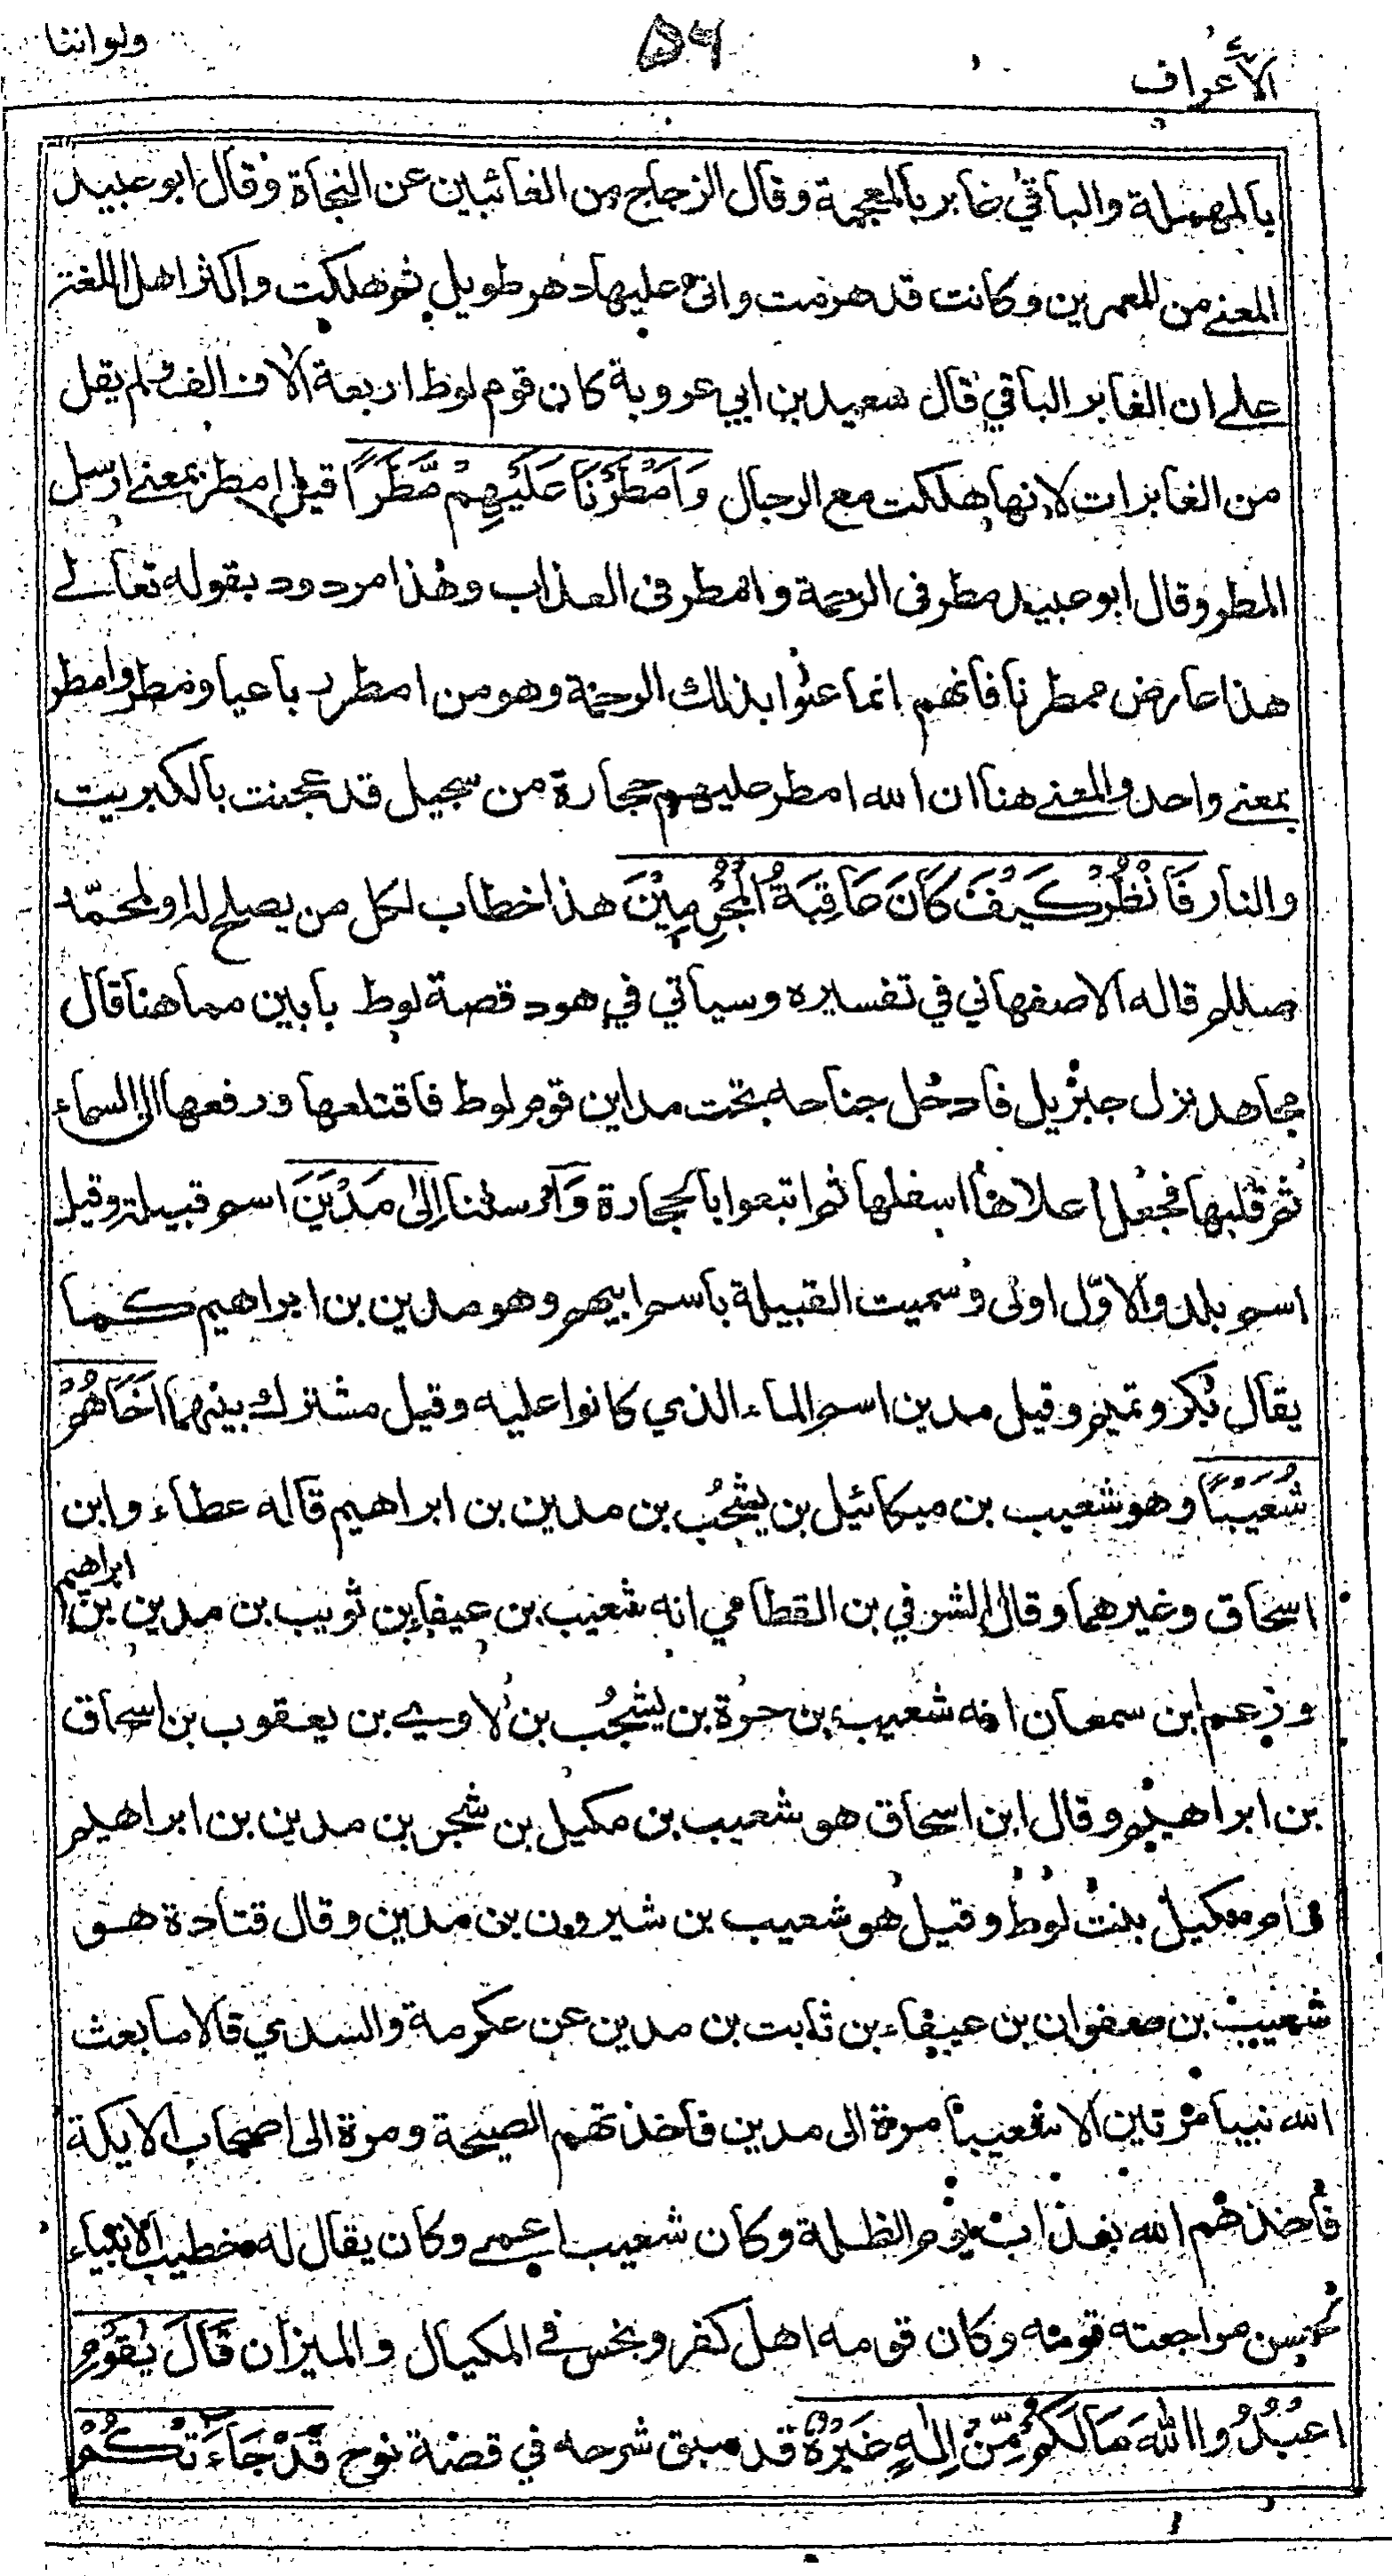 الأعراف
٥٩
ولواننا
بالمهملة والباقي غابر بالمعجمة وقال الزجاج من الغائبين عن النجاة وقال ابو عبيد
المعنے من المعمرين وكانت قد هرمت واتى عليها دهر طويل ثم هلكت واكثر اهل اللغة
علے ان الغابر الباقي قال سعيد بن ابي عروبة كان قوم لوط اربعة آلاف الف ولم يقل
من الغابرات لانها هلكت مع الرجال وَاَمْطَرْنَا عَلَيْهِمْ مَّطَرًا قيل امطر بمعنے ارسل
المطر وقال ابو عبيد مطر فى الرحمة وامطر فى العذاب وهذا مردود بقوله تعالے
هذا عارض ممطرنا فانهم انما عنوا بذلك الرحمة وهو من امطر رباعيا ومطر وامطر
بمعنے واحد والمعنے هنا ان الله امطر عليهم حجارة من سجيل قد عجنت بالكبريت
والنار فَانْظُرْ كَيْفَ كَانَ عَاقِبَةُ الْمُجْرِمِيْنَ هذا خطاب لكل من يصلح له او لمحمّد
صللم قاله الاصفهاني في تفسيره وسيأتي في هود قصة لوط بابين مما هنا قال
مجاهد نزل جبرئيل فادخل جناحه تحت مداين قوم لوط فاقتلعها ورفعها الى السماء
ثم قلبها فجعل اعلاها اسفلها ثم اتبعوا بالحجارة وَ ارسلنا اِلٰى مَدْيَنَ اسم قبيلة وقيل
اسم بلد والاوّل اولى وسميت القبيلة باسم ابيهم وهو مدين بن ابراهيم كما
يقال بكر وتميم وقيل مدين اسم الماء الذي كانوا عليه وقيل مشترك بينهما اَخَاهُمْ
شُعَيْبًا وهو شعيب بن ميكائيل بن يشجُب بن مدين بن ابراهيم قاله عطاء وابن
اسحاق وغيرهما وقال الشرفي بن القطامي انه شعيب بن عيفاء بن ثويب بن مدين بن ابراهيم
وزعم ابن سمعان انه شعيب بن حرة بن يشجُب بن لاوے بن يعقوب بن اسحاق
بن ابراهيم وقال ابن اسحاق هو شعيب بن مكيل بن شجر بن مدين بن ابراهيم
و ام مكيل بنت لوط وقيل هو شعيب بن شيرون بن مدين وقال قتادة هو
شعيب بن صفوان بن عيفاء بن ثابت بن مدين عن عكرمة والسدي قالا ما بعث
الله نبيا مرتين الا شعيبا مرة الى مدين فاخذتهم الصيحة ومرة الى اصحاب الايكة
فاخذهم الله بعذاب يوم الظلة وكان شعيب اعمے وكان يقال له خطيب الانبياء
لحسن مراجعته قومه وكان قومه اهل كفر وبخس في المكيال والميزان قَالَ يٰقَوْمِ
اعْبُدُوا اللهَ مَا لَكُمْ مِّنْ اِلٰهٍ غَيْرُهٗ قد سبق شرحه في قصة نوح قَدْ جَآءَتْكُمْ